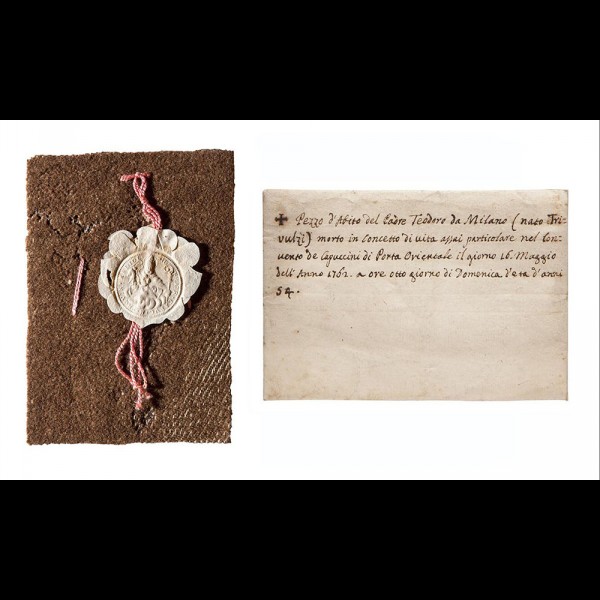 ✠ Pezzo d'Abito del Padre Teodoro da Milano (nato Tri-
vulzj) morto in Concetto di vita assai particolare nel Con-
vento de Capuccini di Porta Orientale il giorno 16. Maggio
dell'Anno 1762. a ore otto giorno di Domenica d'eta d'anni
54.